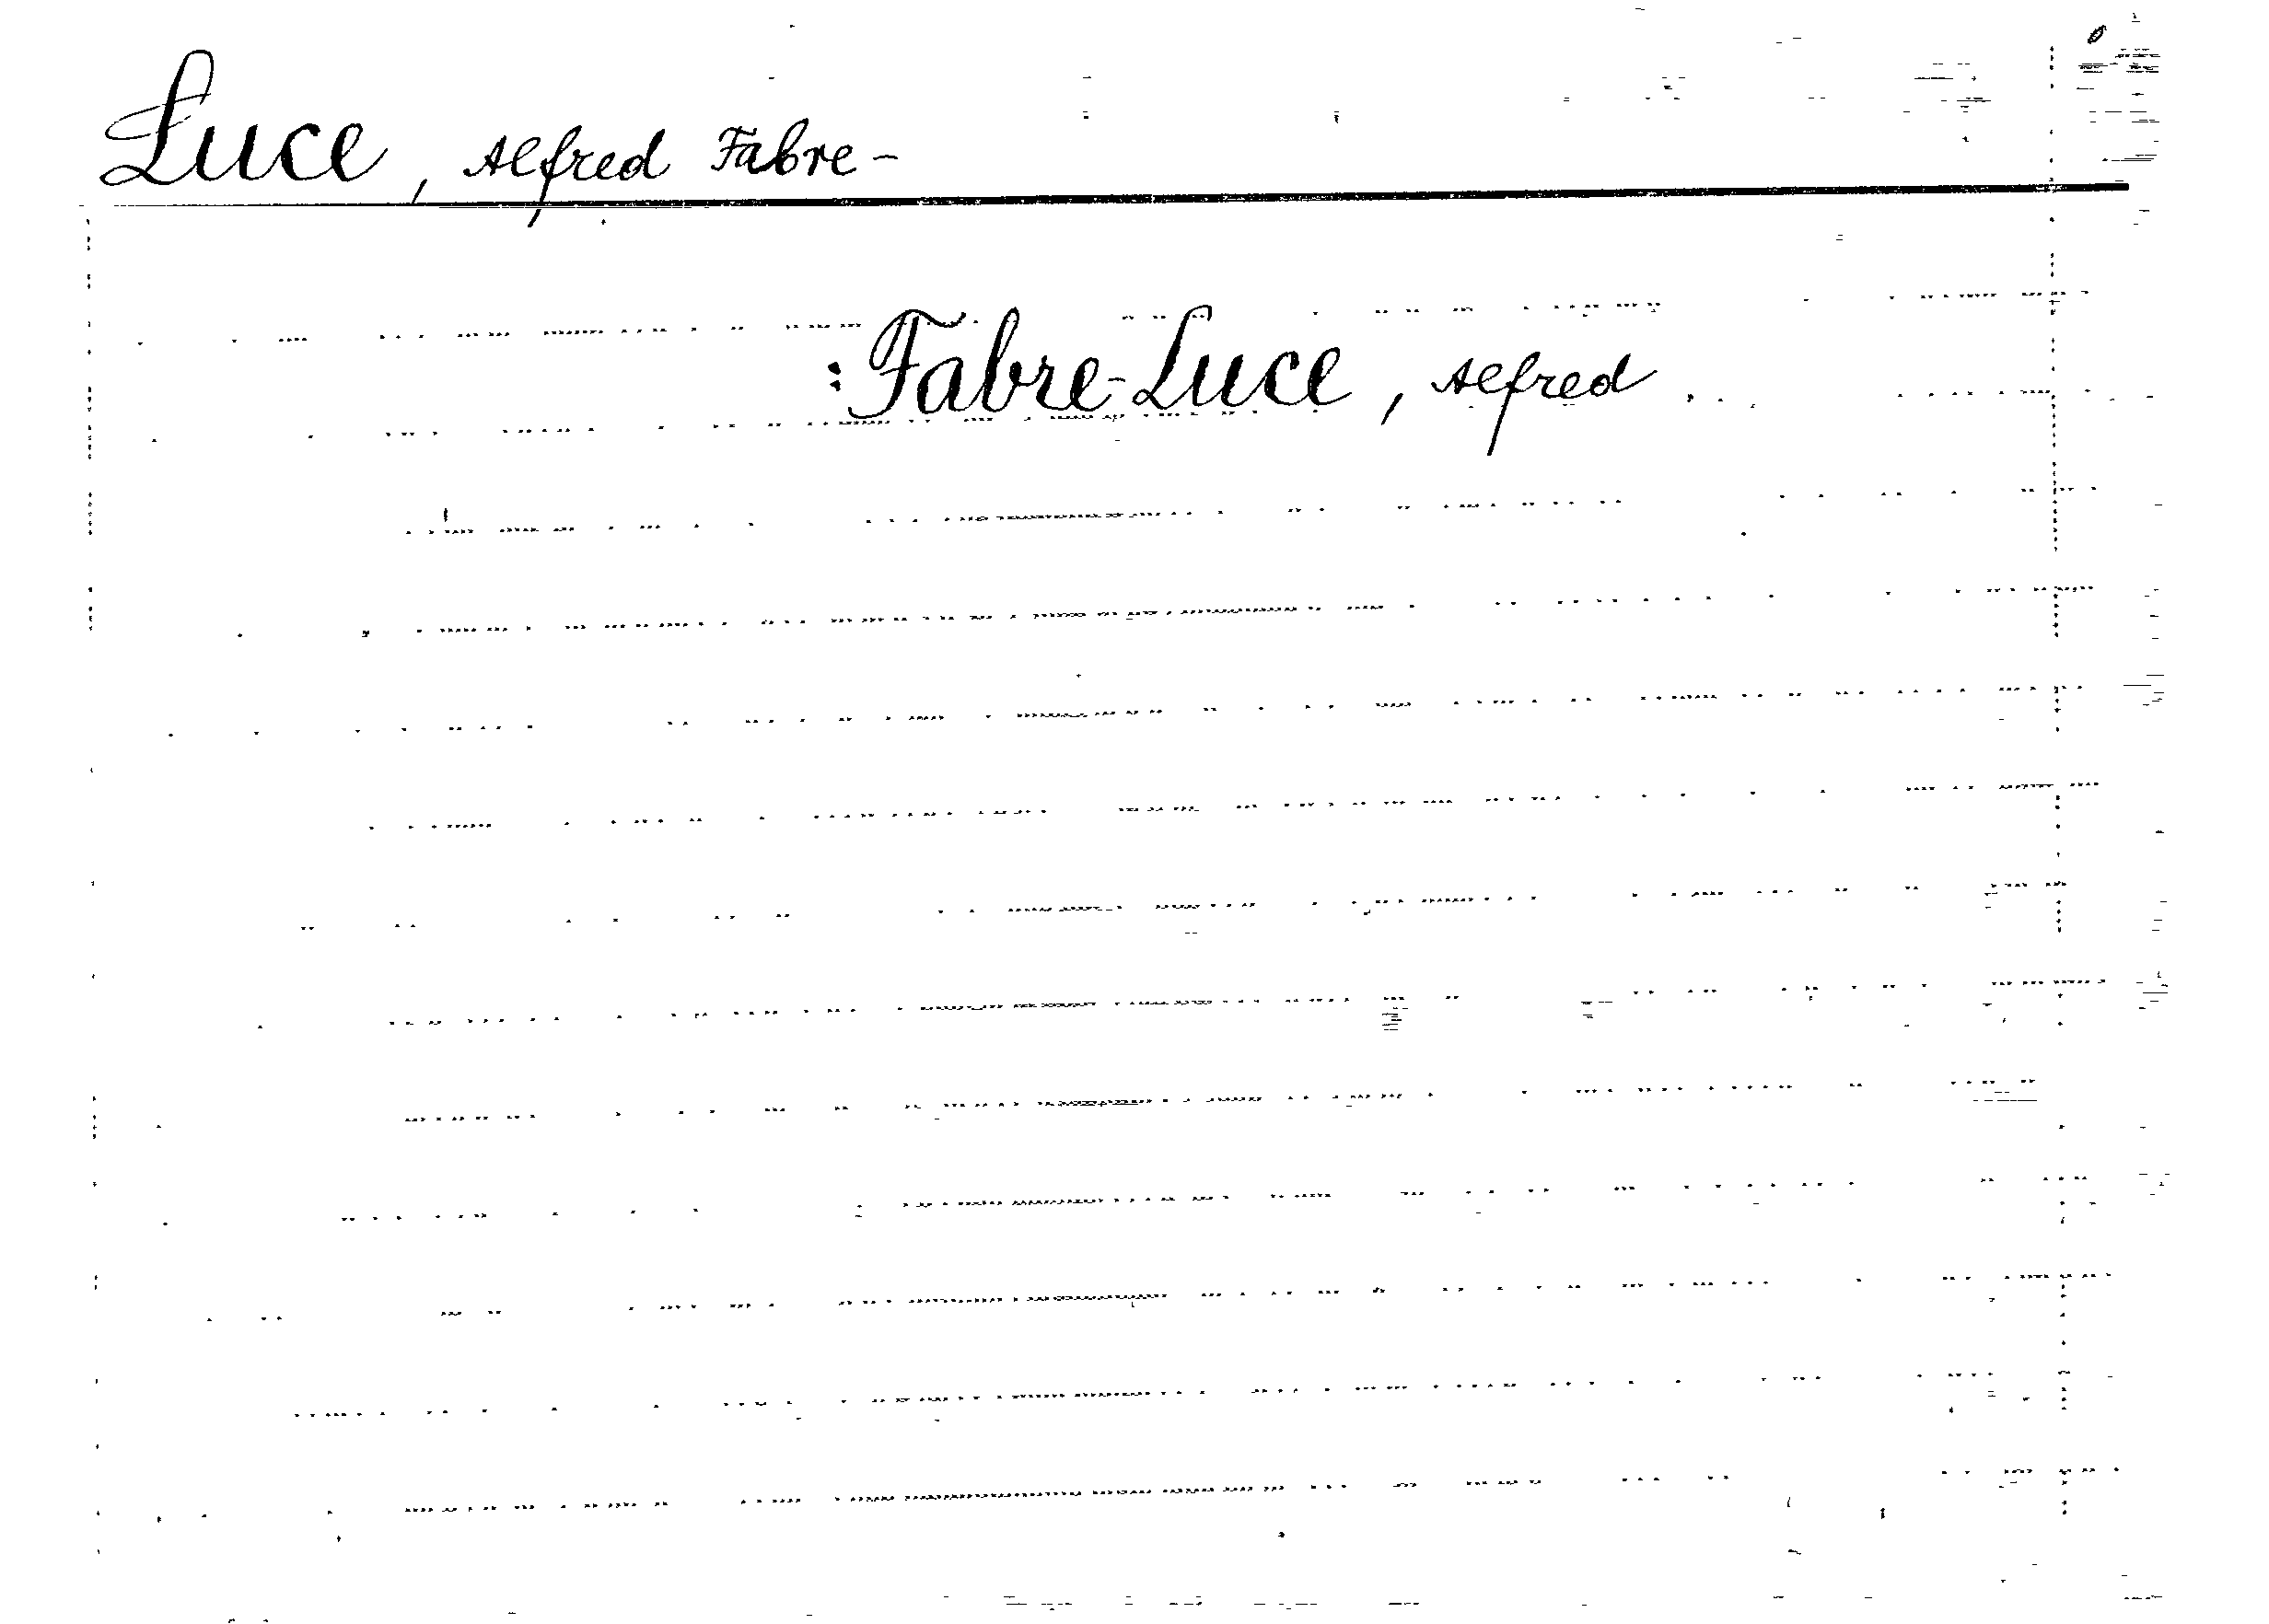 Luce, Alfred Fabre-
: Fabre-Luce, Alfred